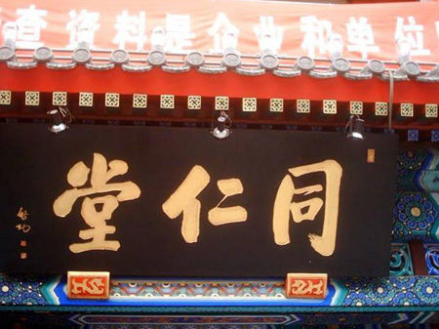 查资料是企业和单位
同仁堂